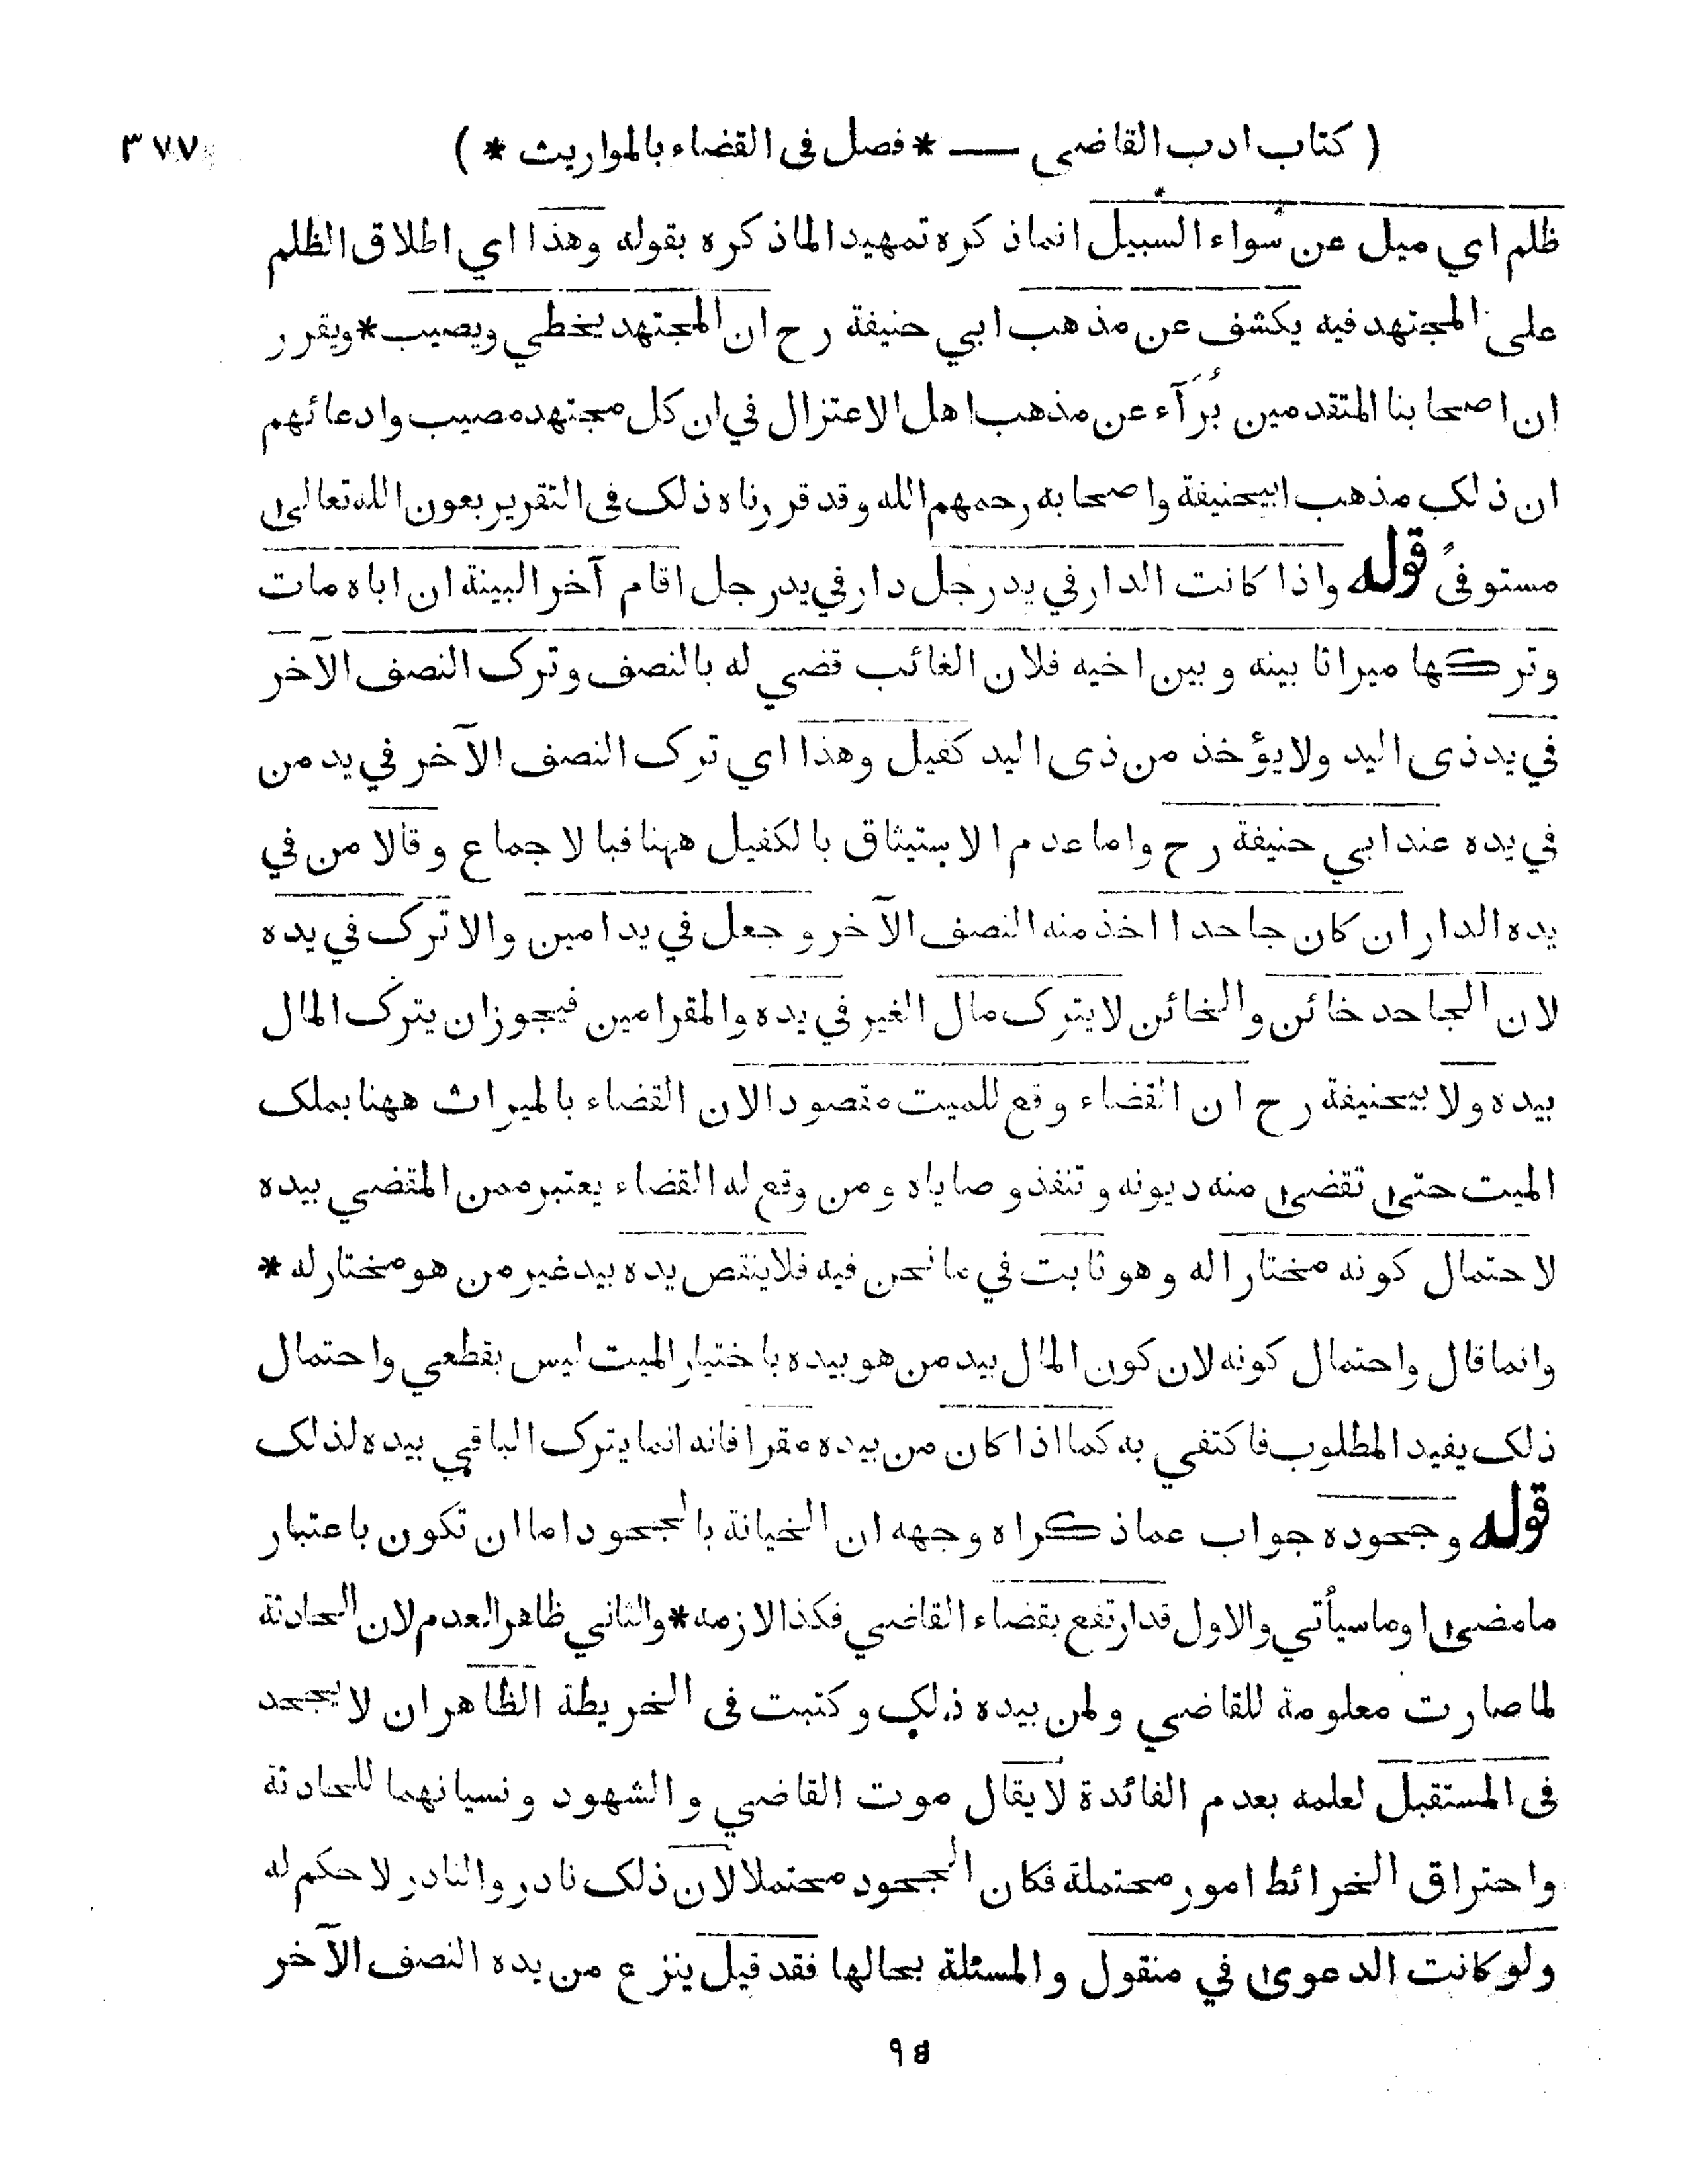 ( كتاب ادب القاضي — * فصل فى القضاء بالمواريث * ) ٣٧٧
ظلم اي ميل عن سواء السبيل انما ذكره تمهيدا لما ذكره بقوله وهذا اي اطلاق الظلم
على المجتهد فيه يكشف عن مذهب ابي حنيفة رح ان المجتهد يخطي ويصيب * ويقرر
ان اصحابنا المتقدمين بُرَآء عن مذهب اهل الاعتزال في ان كل مجتهد مصيب وادعائهم
ان ذلك مذهب ابيحنيفة واصحابه رحمهم الله وقد قررناه ذلك فى التقرير بعون الله تعالى
مستوفىً قوله واذا كانت الدار في يد رجل دار في يد رجل اقام آخر البينة ان اباه مات
وتركها ميراثا بينه وبين اخيه فلان الغائب قضي له بالنصف وترك النصف الآخر
في يد ذى اليد ولا يؤخذ من ذى اليد كفيل وهذا اي ترك النصف الآخر في يد من
في يده عند ابي حنيفة رح واما عدم الاستيثاق بالكفيل ههنا فبالاجماع وقالا من في
يده الدار ان كان جاحدا اخذ منه النصف الآخر وجعل في يد امين والا ترك في يده
لان الجاحد خائن والخائن لا يترك مال الغير في يده والمقر امين فيجوز ان يترك المال
بيده ولابيحنيفة رح ان القضاء وقع للميت مقصودا لان القضاء بالميراث ههنا بملك
الميت حتى تقضى منه ديونه وتنفذ وصاياه ومن وقع له القضاء يعتبر ممن المقضي بيده
لاحتمال كونه مختارا له وهو ثابت في ما نحن فيه فلا ينقص يده بيد غير من هو مختار له *
وانما قال واحتمال كونه لان كون المال بيد من هو بيده باختيار الميت ليس بقطعي واحتمال
ذلك يفيد المطلوب فاكتفي به كما اذا كان من بيده مقرا فانه انما يترك الباقي بيده لذلك
قوله وجحوده جواب عما ذكراه وجهه ان الخيانة بالجحود اما ان تكون باعتبار
ما مضى او ما سيأتي والاول قد ارتفع بقضاء القاضي فكذا لازمه * والثاني ظاهر العدم لان الحادثة
لما صارت معلومة للقاضي ولمن بيده ذلك وكتبت فى الخريطة الظاهر ان لا يجحد
فى المستقبل لعلمه بعدم الفائدة لا يقال موت القاضي والشهود ونسيانهما للحادثة
واحتراق الخرائط امور محتملة فكان الجحود محتملا لان ذلك نادر والنادر لا حكم له
ولو كانت الدعوى في منقول والمسئلة بحالها فقد قيل ينزع من يده النصف الآخر